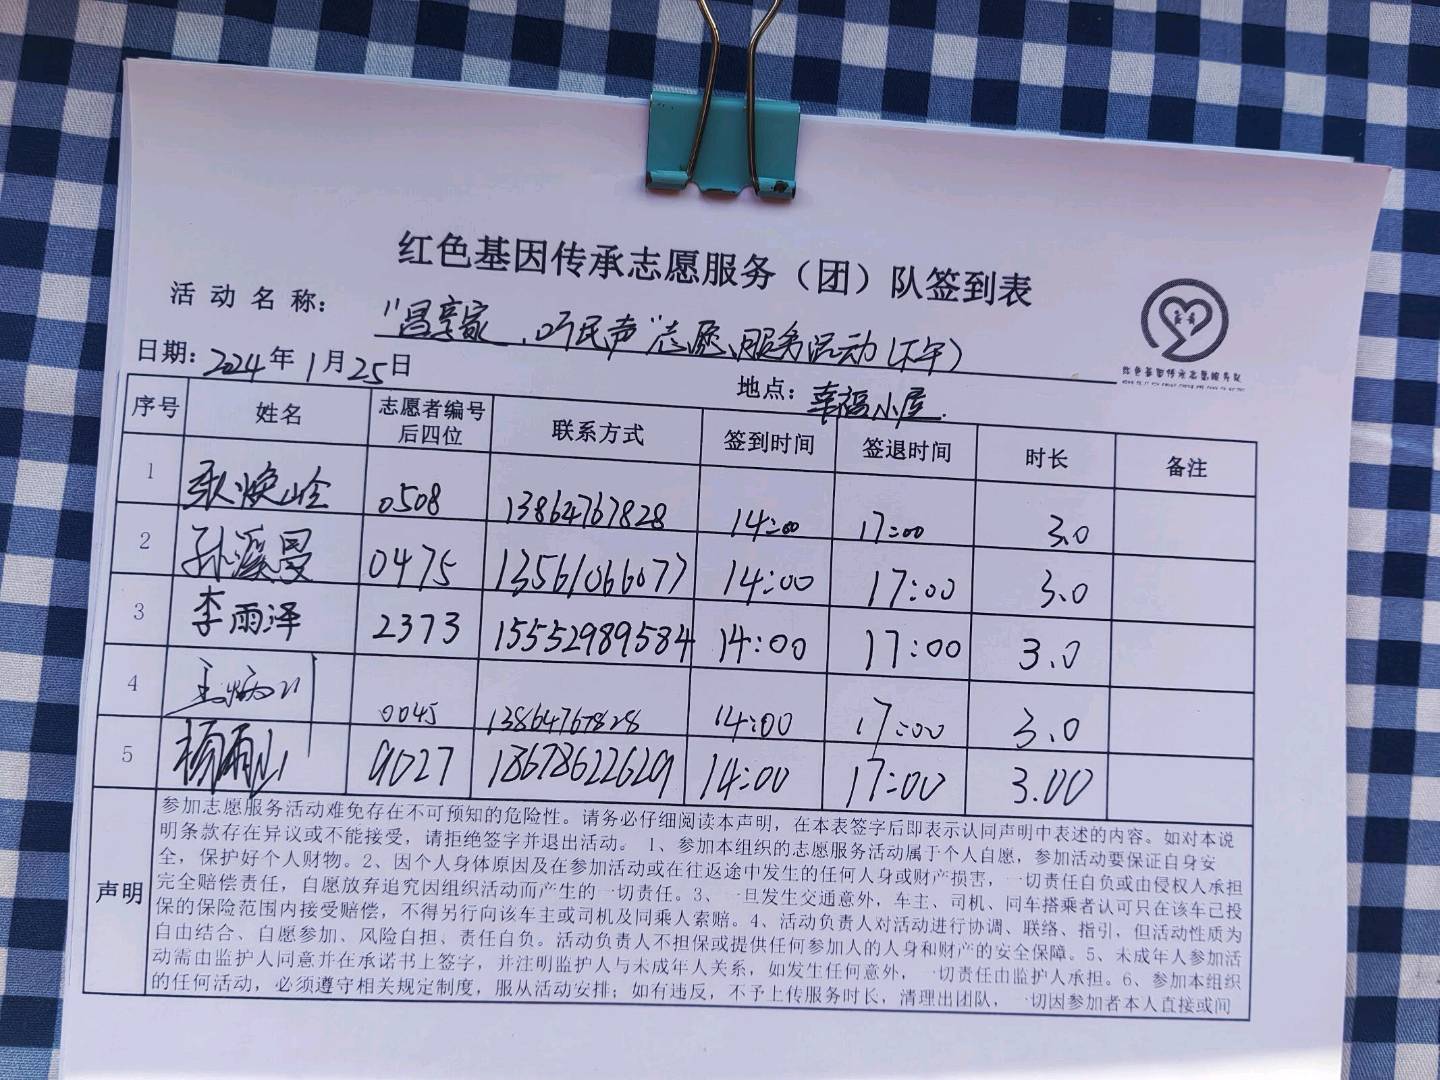 红色基因传承志愿服务（团）队签到表
活动名称： “昌享家、听民声”志愿服务活动（下午）
日期：2024年1月25日 地点：幸福小屋.
红色基因传承志愿服务队
序号 姓名 志愿者编号后四位 联系方式 签到时间 签退时间 时长 备注
1 0508 13864767828 14:00 17:00 3.0
2 孙溪曼 0475 13561066077 14:00 17:00 3.0
3 李雨泽 2373 15552989584 14:00 17:00 3.0
4 0045 13864767828 14:00 17:00 3.0
5 杨雨山 9027 18678622629 14:00 17:00 3.00
声明
参加志愿服务活动难免存在不可预知的危险性。请务必仔细阅读本声明，在本表签字后即表示认同声明中表述的内容。如对本说
明条款存在异议或不能接受，请拒绝签字并退出活动。 1、参加本组织的志愿服务活动属于个人自愿，参加活动要保证自身安
全，保护好个人财物。2、因个人身体原因及在参加活动或在往返途中发生的任何人身或财产损害，一切责任自负或由侵权人承担
完全赔偿责任，自愿放弃追究因组织活动而产生的一切责任。3、一旦发生交通意外，车主、司机、同车搭乘者认可只在该车已投
保的保险范围内接受赔偿，不得另行向该车主或司机及同乘人索赔。4、活动负责人对活动进行协调、联络、指引，但活动性质为
自由结合、自愿参加、风险自担、责任自负。活动负责人不担保或提供任何参加人的人身和财产的安全保障。5、未成年人参加活
动需由监护人同意并在承诺书上签字，并注明监护人与未成年人关系，如发生任何意外，一切责任由监护人承担。6、参加本组织
的任何活动，必须遵守相关规定制度，服从活动安排；如有违反，不予上传服务时长，清理出团队，一切因参加者本人直接或间